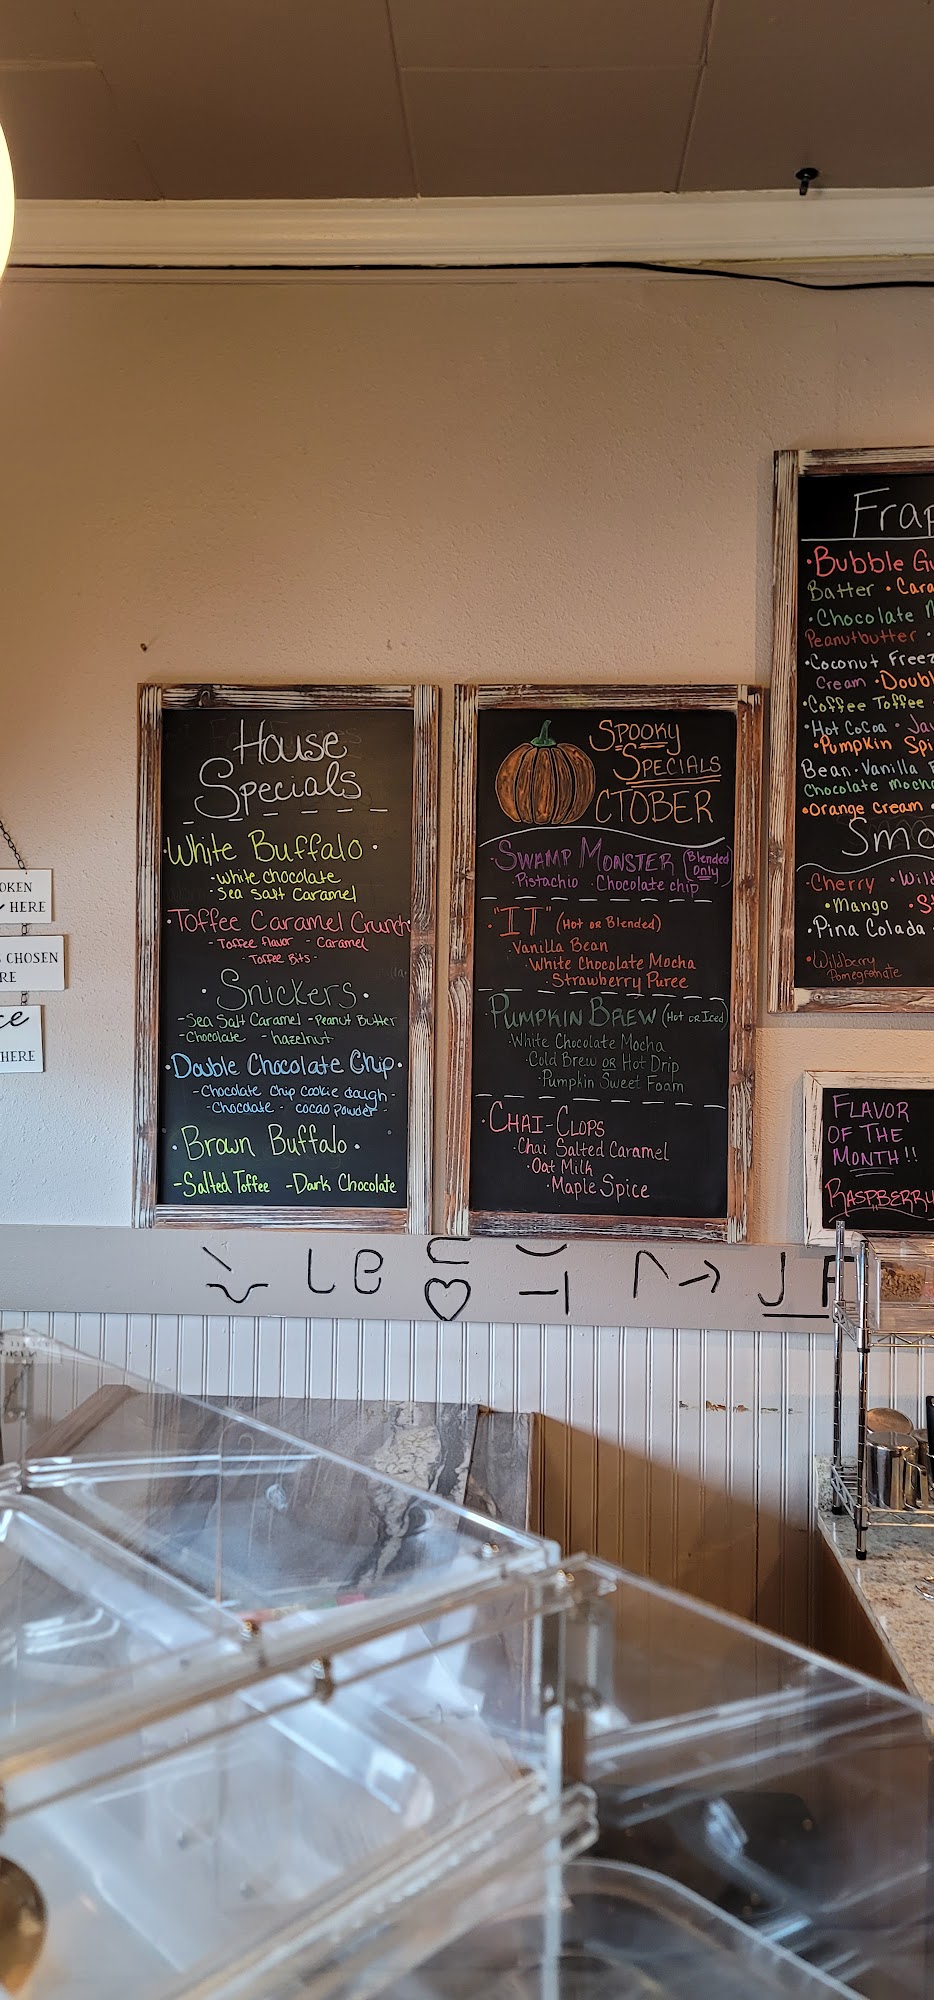 House
Specials
White Buffalo •
- White chocolate
- Sea Salt Caramel
• Toffee Caramel Crunch
- Toffee flavor - Caramel
- Toffee Bits -
• Snickers •
- Sea Salt Caramel - Peanut Butter
- Chocolate - hazelnut
• Double Chocolate Chip •
- Chocolate Chip Cookie dough -
- Chocolate - cocao powder -
• Brown Buffalo •
- Salted Toffee - Dark Chocolate
SPOOKY
SPECIALS
CTOBER
• SWAMP MONSTER (Blended
Only)
• Pistachio • Chocolate chip
• "IT" (Hot OR Blended)
• Vanilla Bean
• White Chocolate Mocha
• Strawberry Puree
• PUMPKIN BREW (Hot OR Iced)
• White Chocolate Mocha
• Cold Brew OR Hot Drip
• Pumpkin Sweet Foam
• CHAI-CLOPS
• Chai Salted Caramel
• Oat Milk
• Maple Spice
Frap
• Bubble Gu
Batter • Cara
• Chocolate M
Peanutbutter •
• Coconut Freez
Cream • Doubl
• Coffee Toffee •
• Hot CoCoa • Jav
• Pumpkin Spi
Bean • Vanilla
Chocolate Mocha
• Orange Cream •
Smo
• Cherry • Wild
• Mango • St
• Pina Colada
• Wildberry
Pomegranate
FLAVOR
OF THE
MONTH!!
RASPBERRY
OKEN
HERE
S CHOSEN
RE
ce
HERE